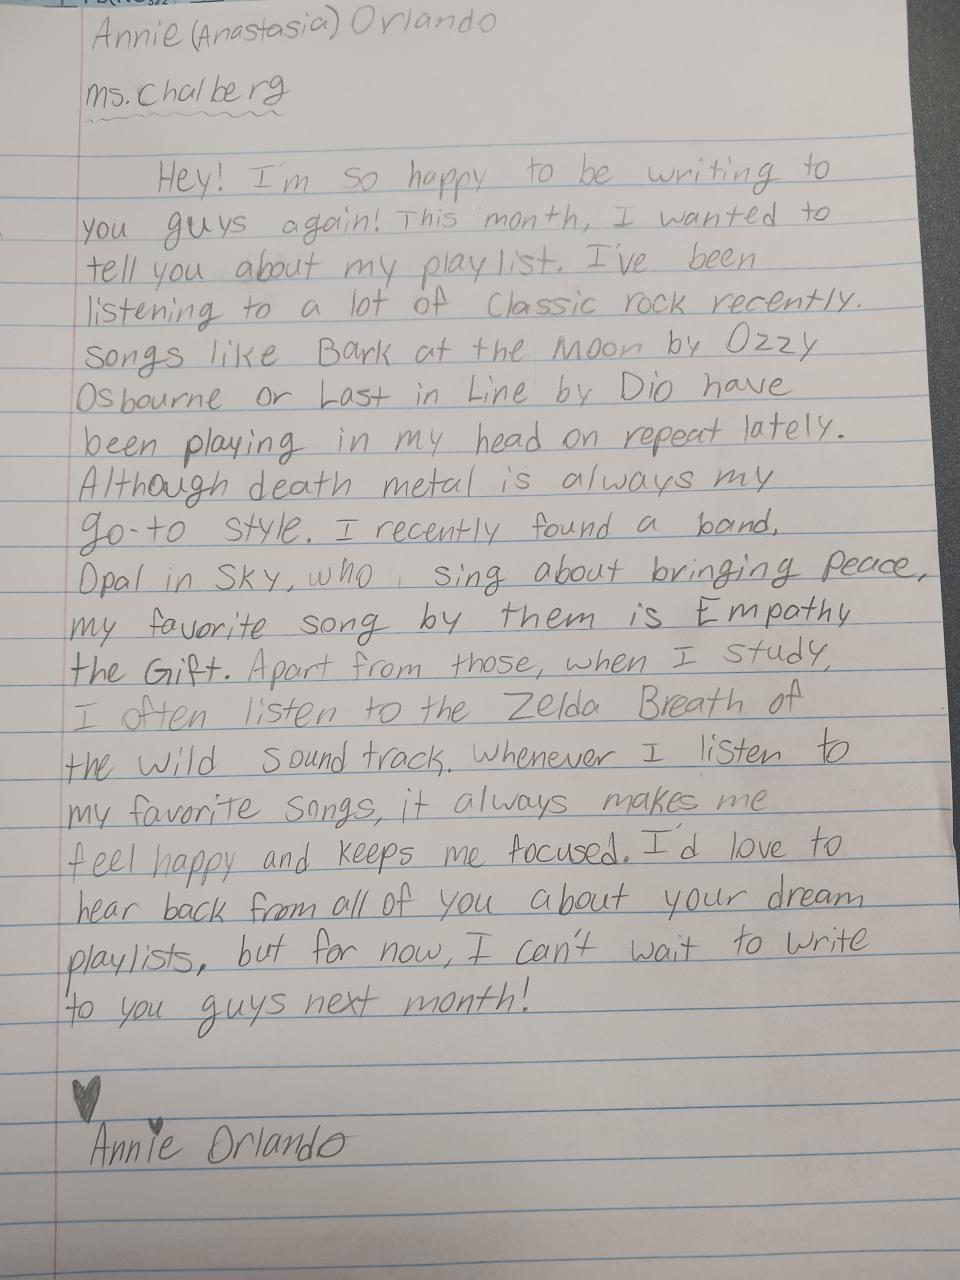 Annie (Anastasia) Orlando
Ms. Chalberg
Hey! I'm so happy to be writing to
you guys again! This month, I wanted to
tell you about my playlist. I've been
listening to a lot of classic rock recently.
Songs like Bark at the Moon by Ozzy
Osbourne or Last in Line by Dio have
been playing in my head on repeat lately.
Although death metal is always my
go-to style. I recently found a band,
Opal in Sky, who sing about bringing peace,
my favorite song by them is Empathy
the Gift. Apart from those, when I study,
I often listen to the Zelda Breath of
the Wild Sound track. Whenever I listen to
my favorite songs, it always makes me
feel happy and keeps me focused. I'd love to
hear back from all of you about your dream
playlists, but for now, I can't wait to write
to you guys next month!
Annie Orlando